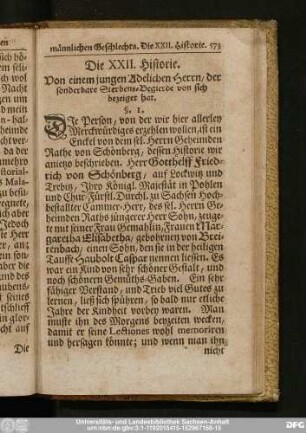 männlichen Geschlechts. Die XXII. Historie. 573
Die XXII. Historie.
Von einem jungen Adelichen Herrn, der
sonderbare Sterbens-Begierde von sich
bezeiget hat.
§. 1.
Die Person, von der wir hier allerley
Merckwürdiges erzehlen wollen, ist ein
Enckel von dem sel. Herrn Geheimden
Rathe von Schönberg, dessen Historie wir
anietzo beschrieben. Herr Gotthelff Fried-
rich von Schönberg, auf Lockwitz und
Trebitz, Ihro Königl. Majestät in Pohlen
und Chur-Fürstl. Durchl. zu Sachsen Hoch-
bestallter Cammer-Herr, des sel. Herrn Ge-
heimden Raths jüngerer Herr Sohn, zeuge-
te mit seiner Frau Gemahlin, Frauen Mar-
garetha Elisabetha, gebohrnen von Brei-
tenbach, einen Sohn, den sie in der heiligen
Tauffe Haubolt Caspar nennen liessen. Es
war ein Kind von sehr schöner Gestalt, und
noch schönern Gemüths-Gaben. Ein sehr
fähiger Verstand, und Trieb viel Gutes zu
lernen, ließ sich spühren, so bald nur etliche
Jahre der Kindheit vorbey waren. Man
muste ihn des Morgens beyzeiten wecken,
damit er seine Lectiones wohl memoriren
und hersagen könnte; und wenn man ihn
nicht
Die
Universitäts- und Landesbibliothek Sachsen-Anhalt
urn:nbn:de:gbv:3:1-1192015415-152967156-15
DFG